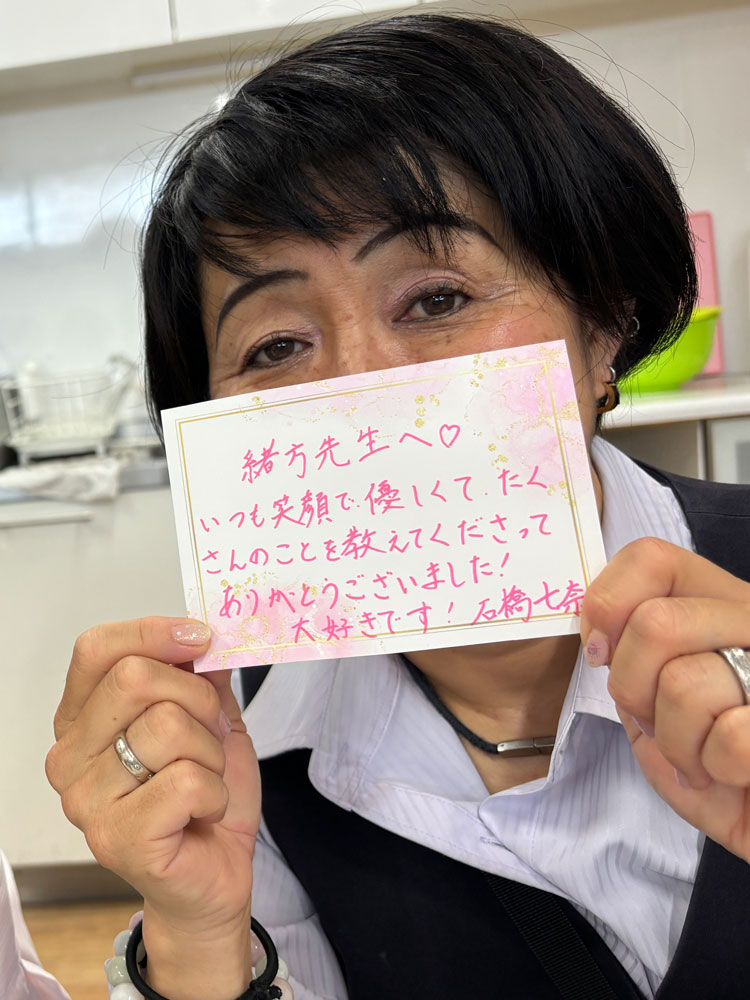 緒方先生へ♡
いつも笑顔で、優しくて、たく
さんのことを教えてくださって
ありがとうございました!
大好きです! 石橋七奈